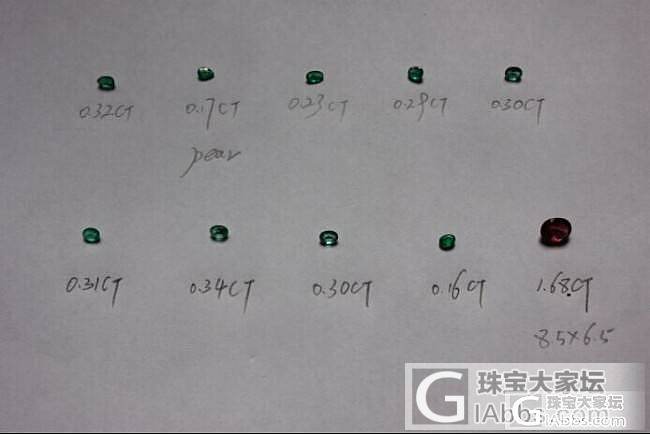 0.32CT 0.17CT 0.23CT 0.29CT 0.30CT
pear
0.31CT 0.34CT 0.30CT 0.16CT 1.68CT
8.5×6.5
珠宝大家坛
GIAbbs.com
珠宝大家坛
GIAbbs.com